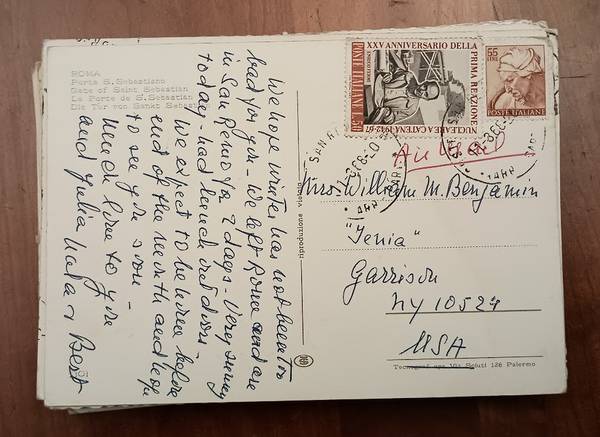 ROMA
Porta S. Sebastiano
Gate of Saint Sebastian
La Porte de S. Sebastian
Die Tür von Sankt Sebastian
We hope winter has not been too
bad for you - We left Rome and are
in San Remo for 2 days - Very sunny
today - had lunch outdoors -
We expect to be home before
end of the month and hope
to see you soon -
Much love to you
and Julia
Best
riproduzione vietata
XXV ANNIVERSARIO DELLA
PRIMA REAZIONE
NUCLEARE A CATENA 1942-67
ENRICO FERMI
POSTE ITALIANE
L. 50
55
LIRE
POSTE ITALIANE
SAN
Mrs. William M. Benjamin
Garrison
NY 10524
USA
Palermo